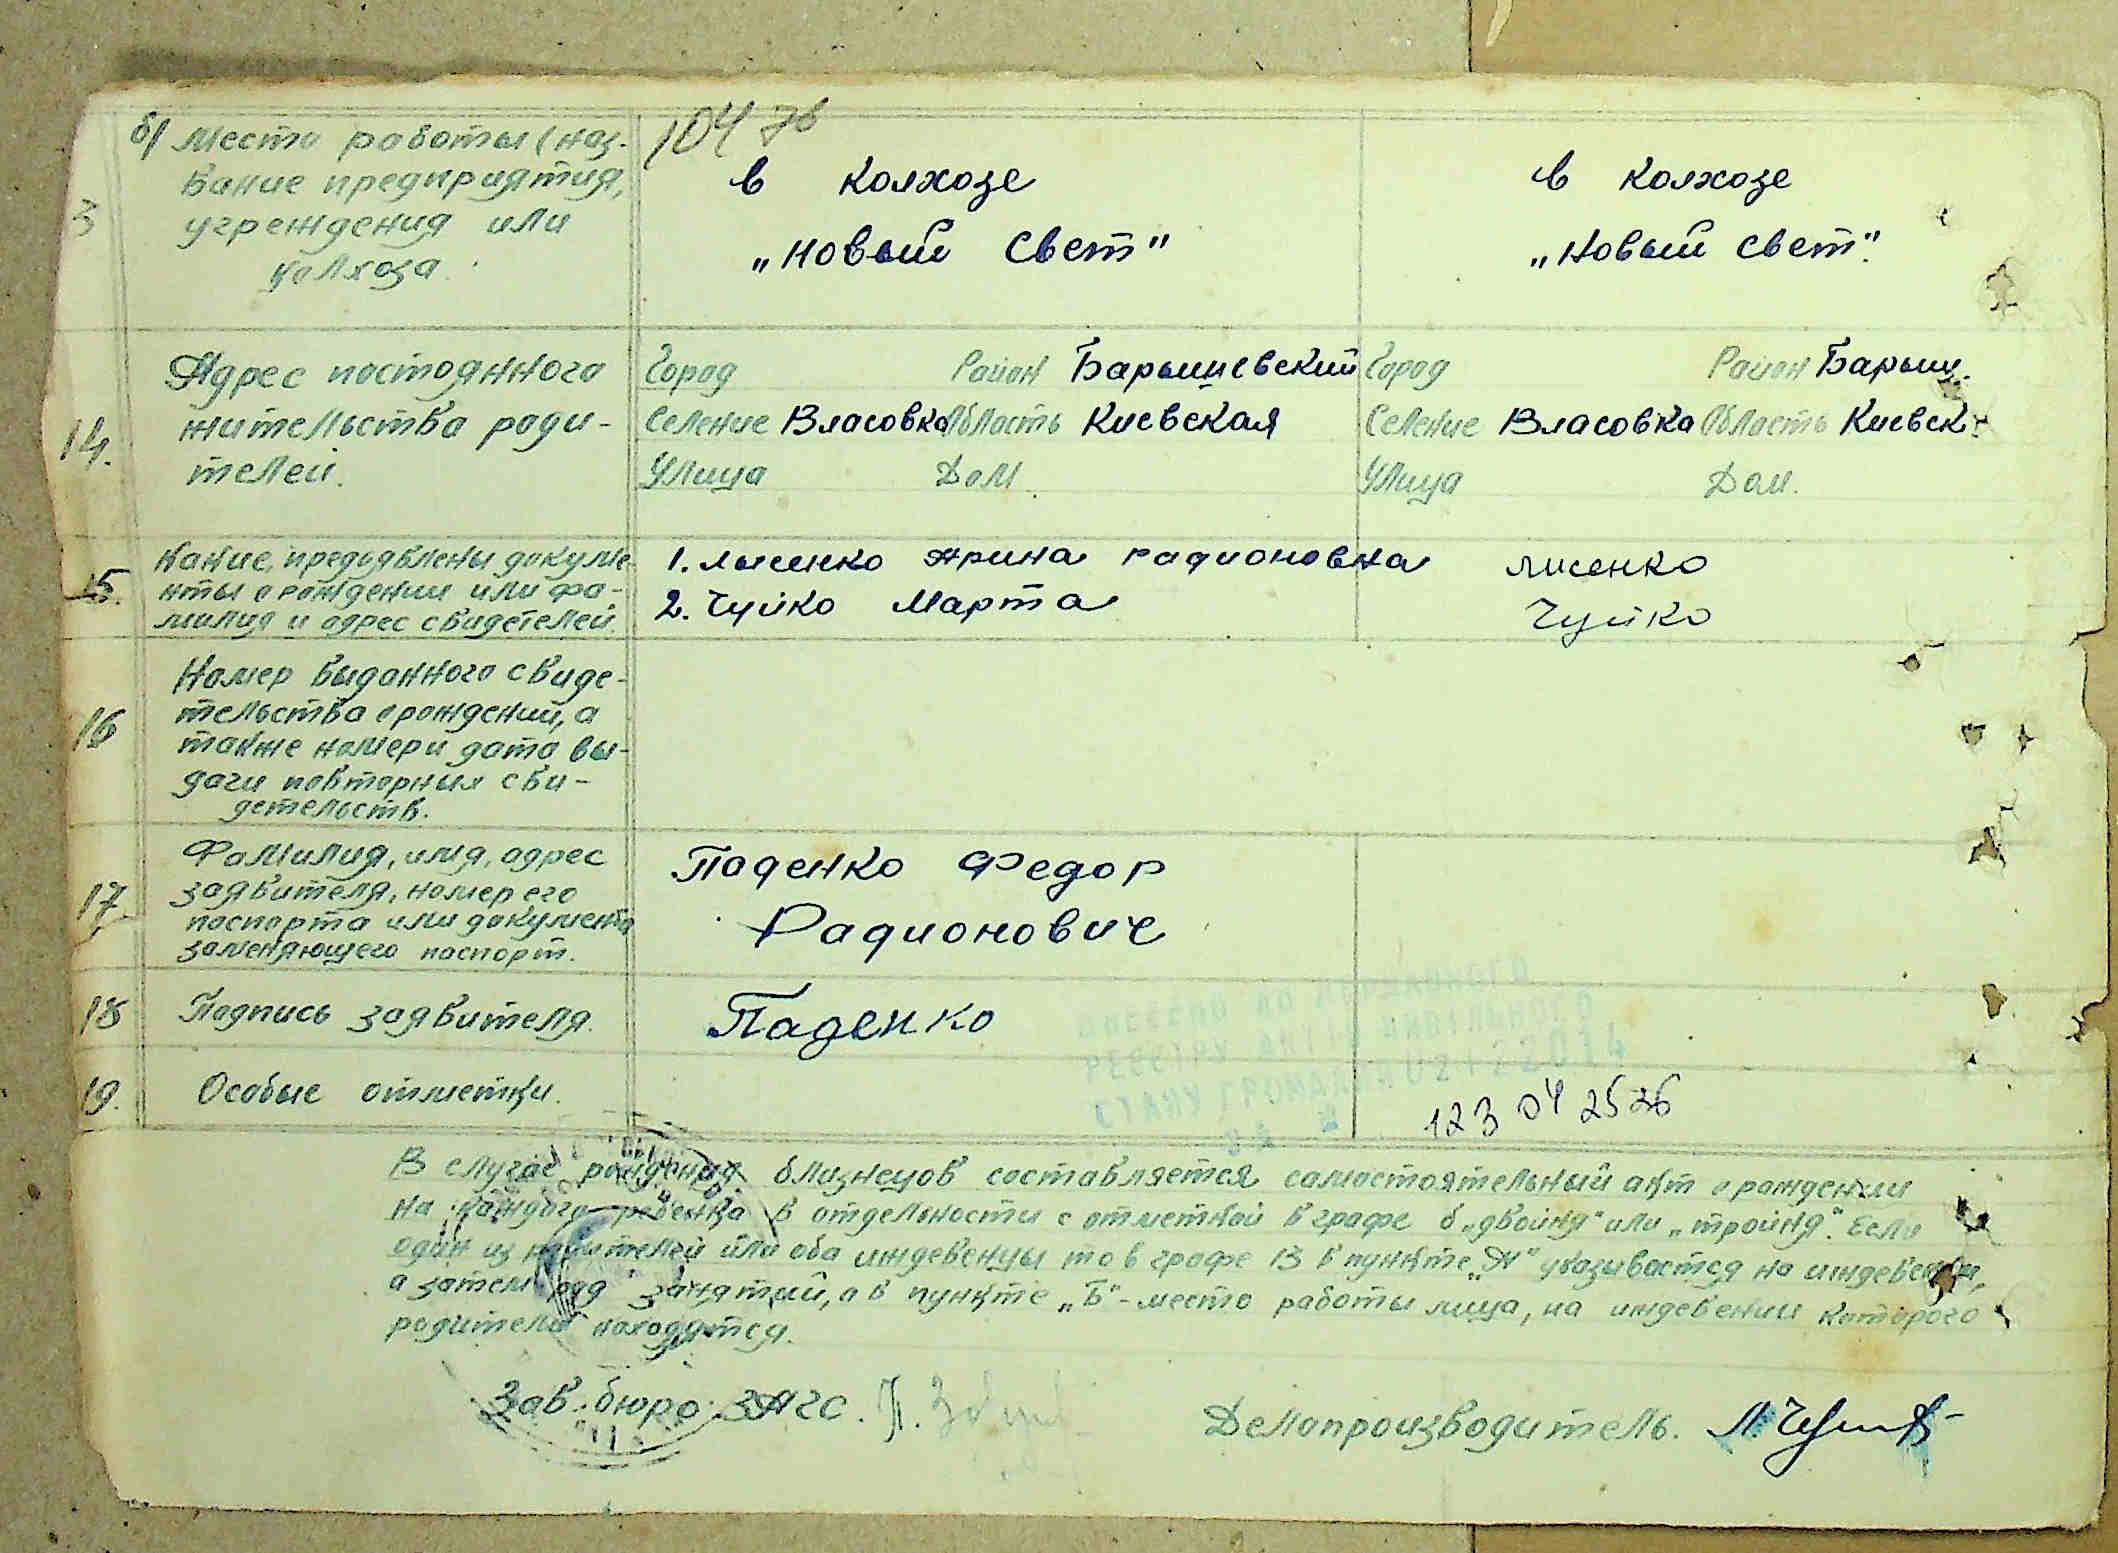 104 78
б) Место работы (наз-
вание предприятия,
учреждения или
колхоза.
3
в колхозе
„Новый Свет"
в колхозе
„Новый Свет".
14.
Адрес постоянного
жительства роди-
телей.
Город Район Барышевский
Селение Власовка Область Киевская
Улица Дом
Город Район Барыш.
Селение Власовка Область Киевск.
Улица Дом.
15.
Какие предъявлены докуме-
нты о рождении или фа-
милия и адрес свидетелей.
1. Лысенко Арина Радионовна
2. Чуйко Марта
Лисенко
Чуйко
16
Номер выданного свиде-
тельства о рождений, а
также номер и дата вы-
дачи повторных сви-
детельств.
17.
Фамилия, имя, адрес
заявителя, номер его
паспорта или документа
заменяющего паспорт.
Паденко Федор
Радионович
18
Подпись заявителя.
Паденко
19.
Особые отметки.
РЕЄСТРУ АКТІВ ЦИВІЛЬНОГО
СТАНУ ГРОМАДЯН
123 04 25 26
В случае рождения близнецов составляется самостоятельный акт о рождении
на каждого ребенка в отдельности с отметкой в графе 6 „двойня" или „тройня". Если
один из родителей или оба иждевенцы то в графе 13 в пункте „А" указывается на иждевении,
а затем род занятий, а в пункте „Б"-место работы лица, на иждевении которого
родители находятся.
Зав. бюро ЗАГС.
Делопроизводитель.